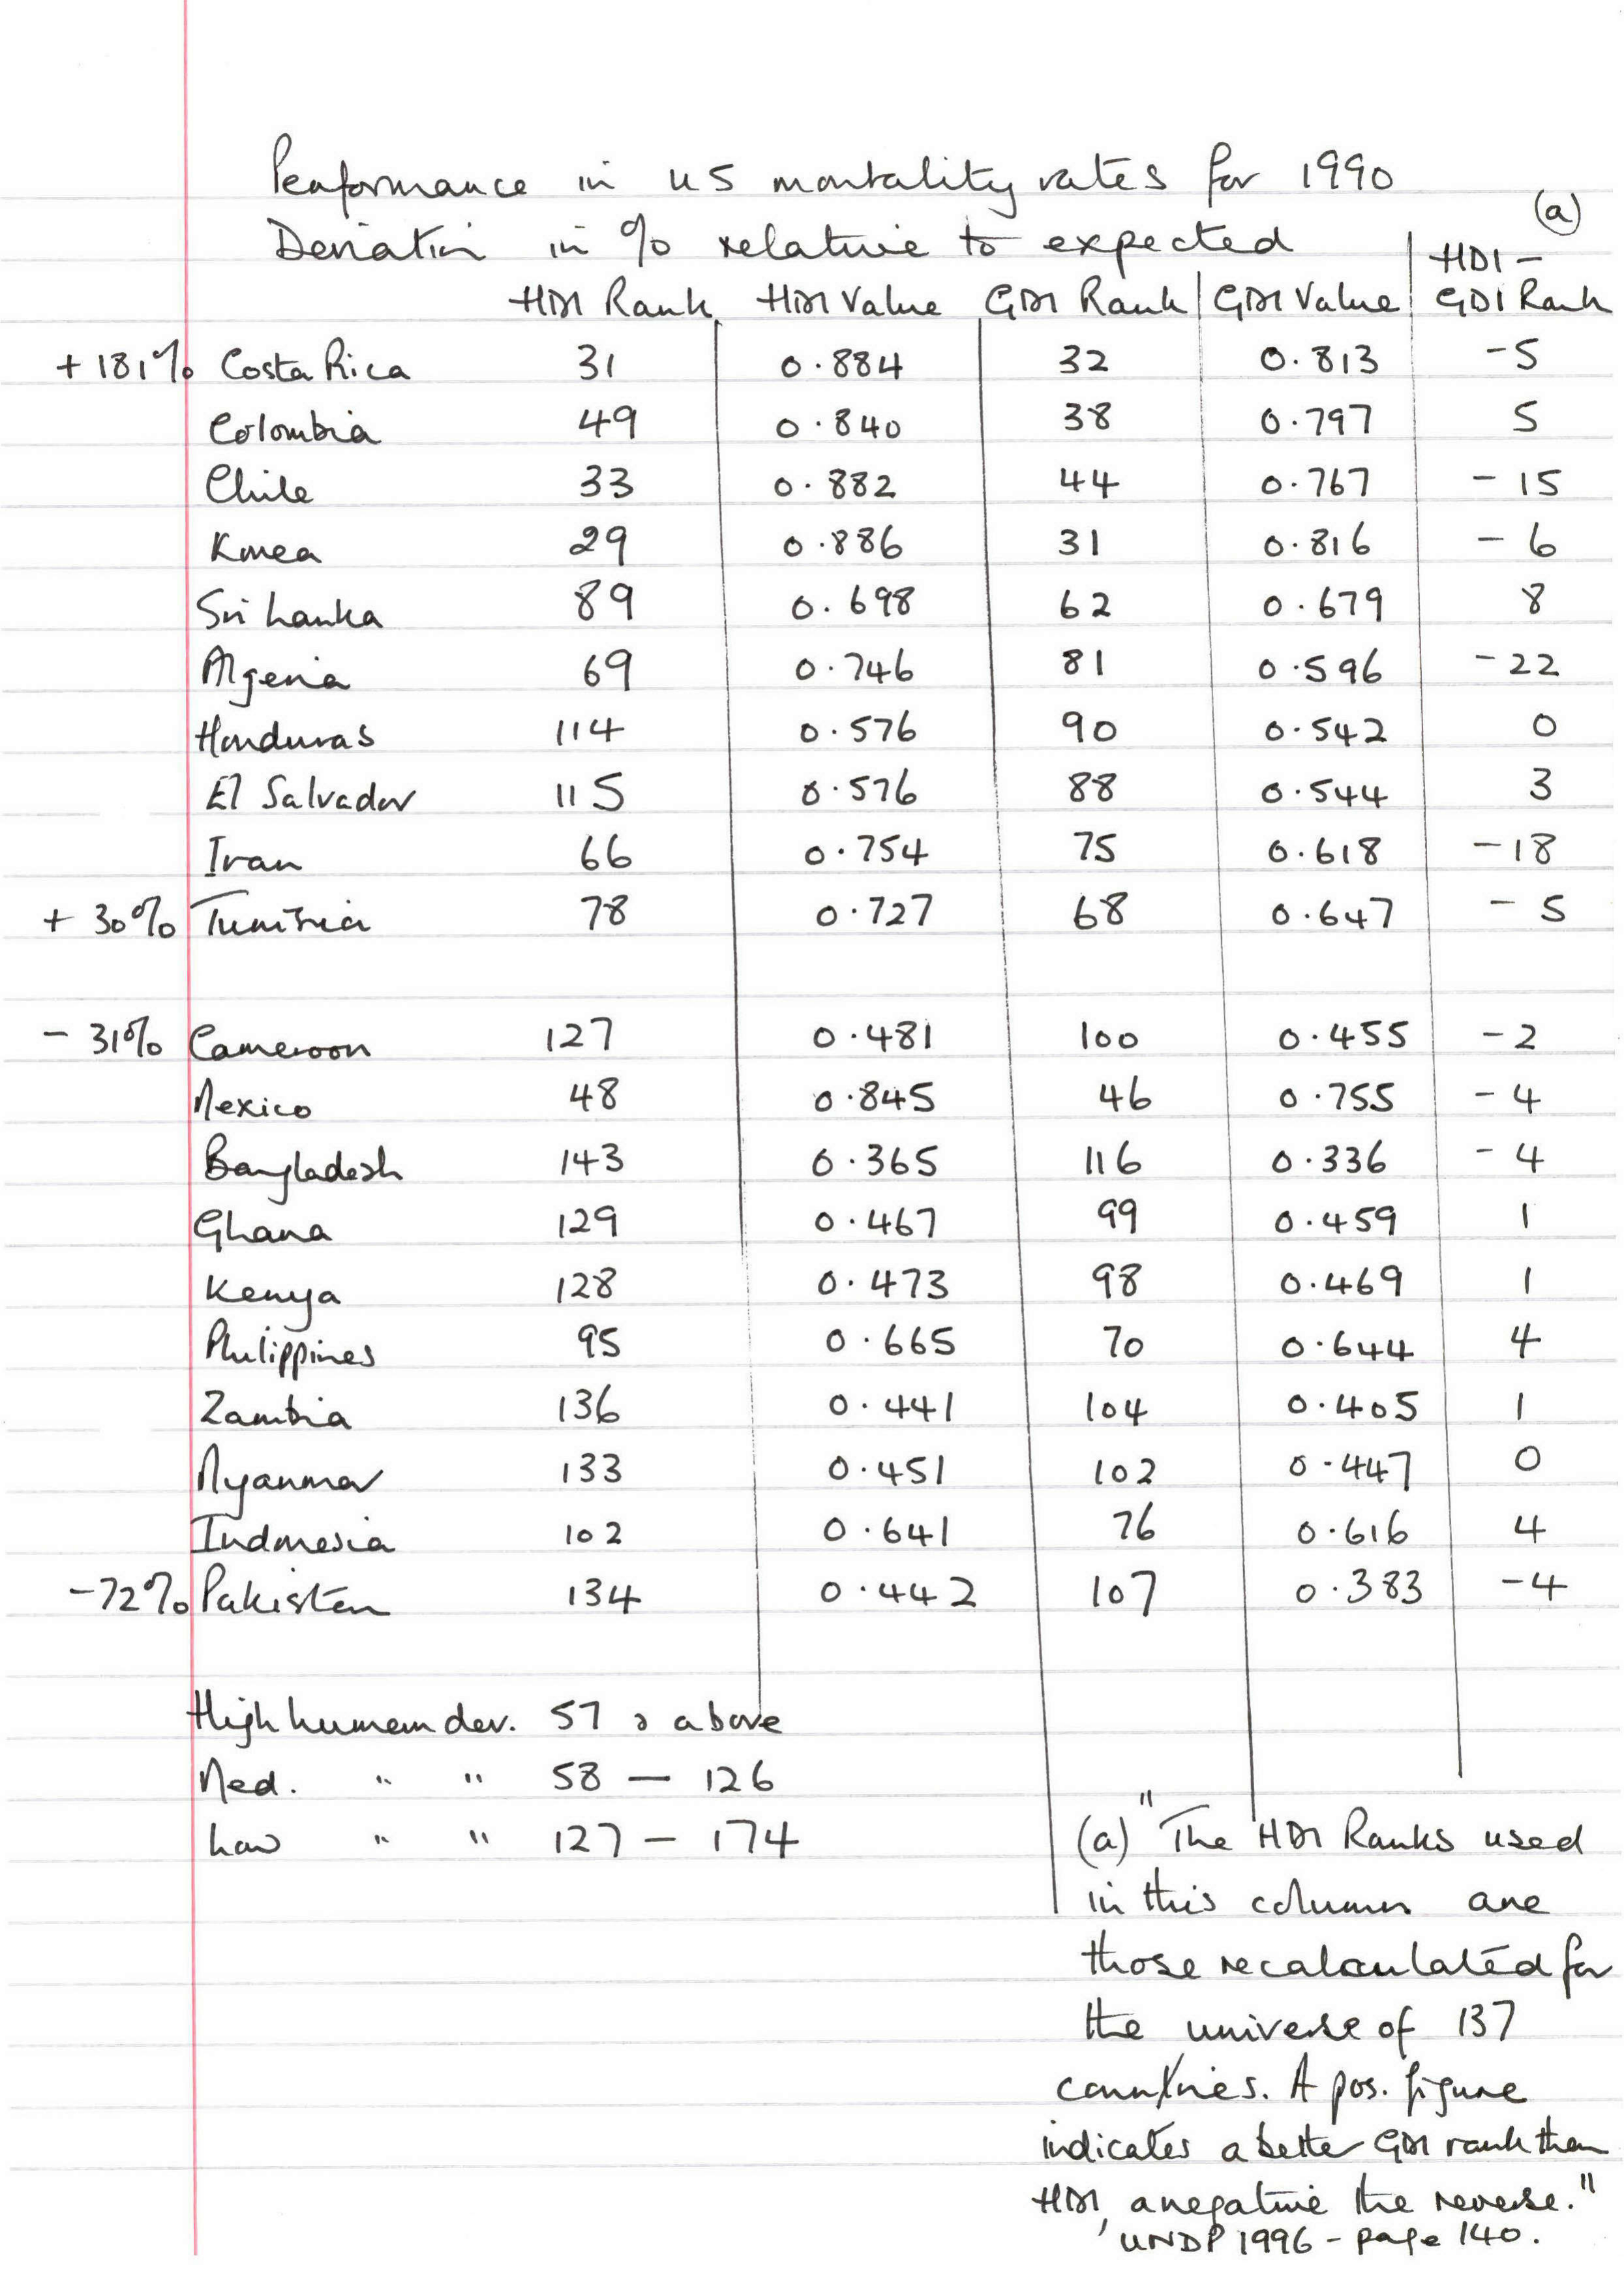 Performance in u5 mortality rates for 1990
Deviation in % relative to expected
(a)
HDI Rank HDI Value GDI Rank GDI Value HDI – GDI Rank
+ 181% Costa Rica 31 0.884 32 0.813 -5
Colombia 49 0.840 38 0.797 5
Chile 33 0.882 44 0.767 - 15
Korea 29 0.886 31 0.816 - 6
Sri Lanka 89 0.698 62 0.679 8
Algeria 69 0.746 81 0.596 -22
Honduras 114 0.576 90 0.542 0
El Salvador 115 0.576 88 0.544 3
Iran 66 0.754 75 0.618 -18
+ 30% Tunisia 78 0.727 68 0.647 - 5
- 31% Cameroon 127 0.481 100 0.455 - 2
Mexico 48 0.845 46 0.755 - 4
Bangladesh 143 0.365 116 0.336 - 4
Ghana 129 0.467 99 0.459 1
Kenya 128 0.473 98 0.469 1
Philippines 95 0.665 70 0.644 4
Zambia 136 0.441 104 0.405 1
Myanmar 133 0.451 102 0.447 0
Indonesia 102 0.641 76 0.616 4
-72% Pakistan 134 0.442 107 0.383 -4
High human dev. 57 & above
Med. " " 58 — 126
Low " " 127 — 174
(a) "The HDI Ranks used
in this column are
those recalculated for
the universe of 137
countries. A pos. figure
indicates a better GDI rank than
HDI, a negative the reverse."
UNDP 1996 - page 140.